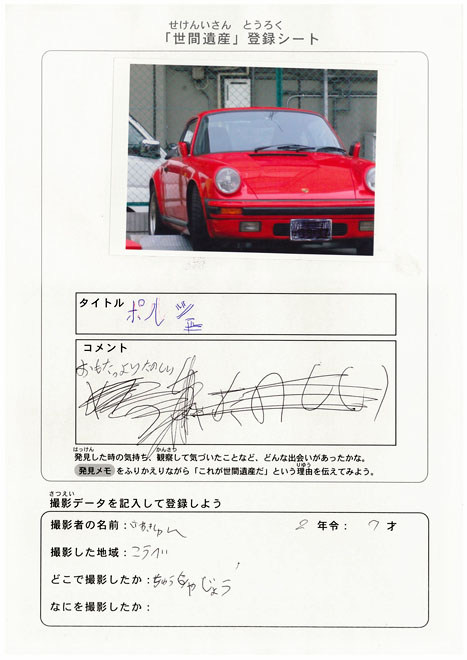 せけんいさん とうろく
「世間遺産」登録シート
タイトル
ポルシェ
コメント
おもったよりたのしい
たのしい
はっけん かんさつ
発見した時の気持ち、観察して気づいたことなど、どんな出会いがあったかな。
りゆう
発見メモ をふりかえりながら「これが世間遺産だ」という理由を伝えてみよう。
さつえい
撮影データを記入して登録しよう
撮影者の名前: 2 年令: 7 才
撮影した地域:こうべ
どこで撮影したか:ちゅうしゃじょう
なにを撮影したか: